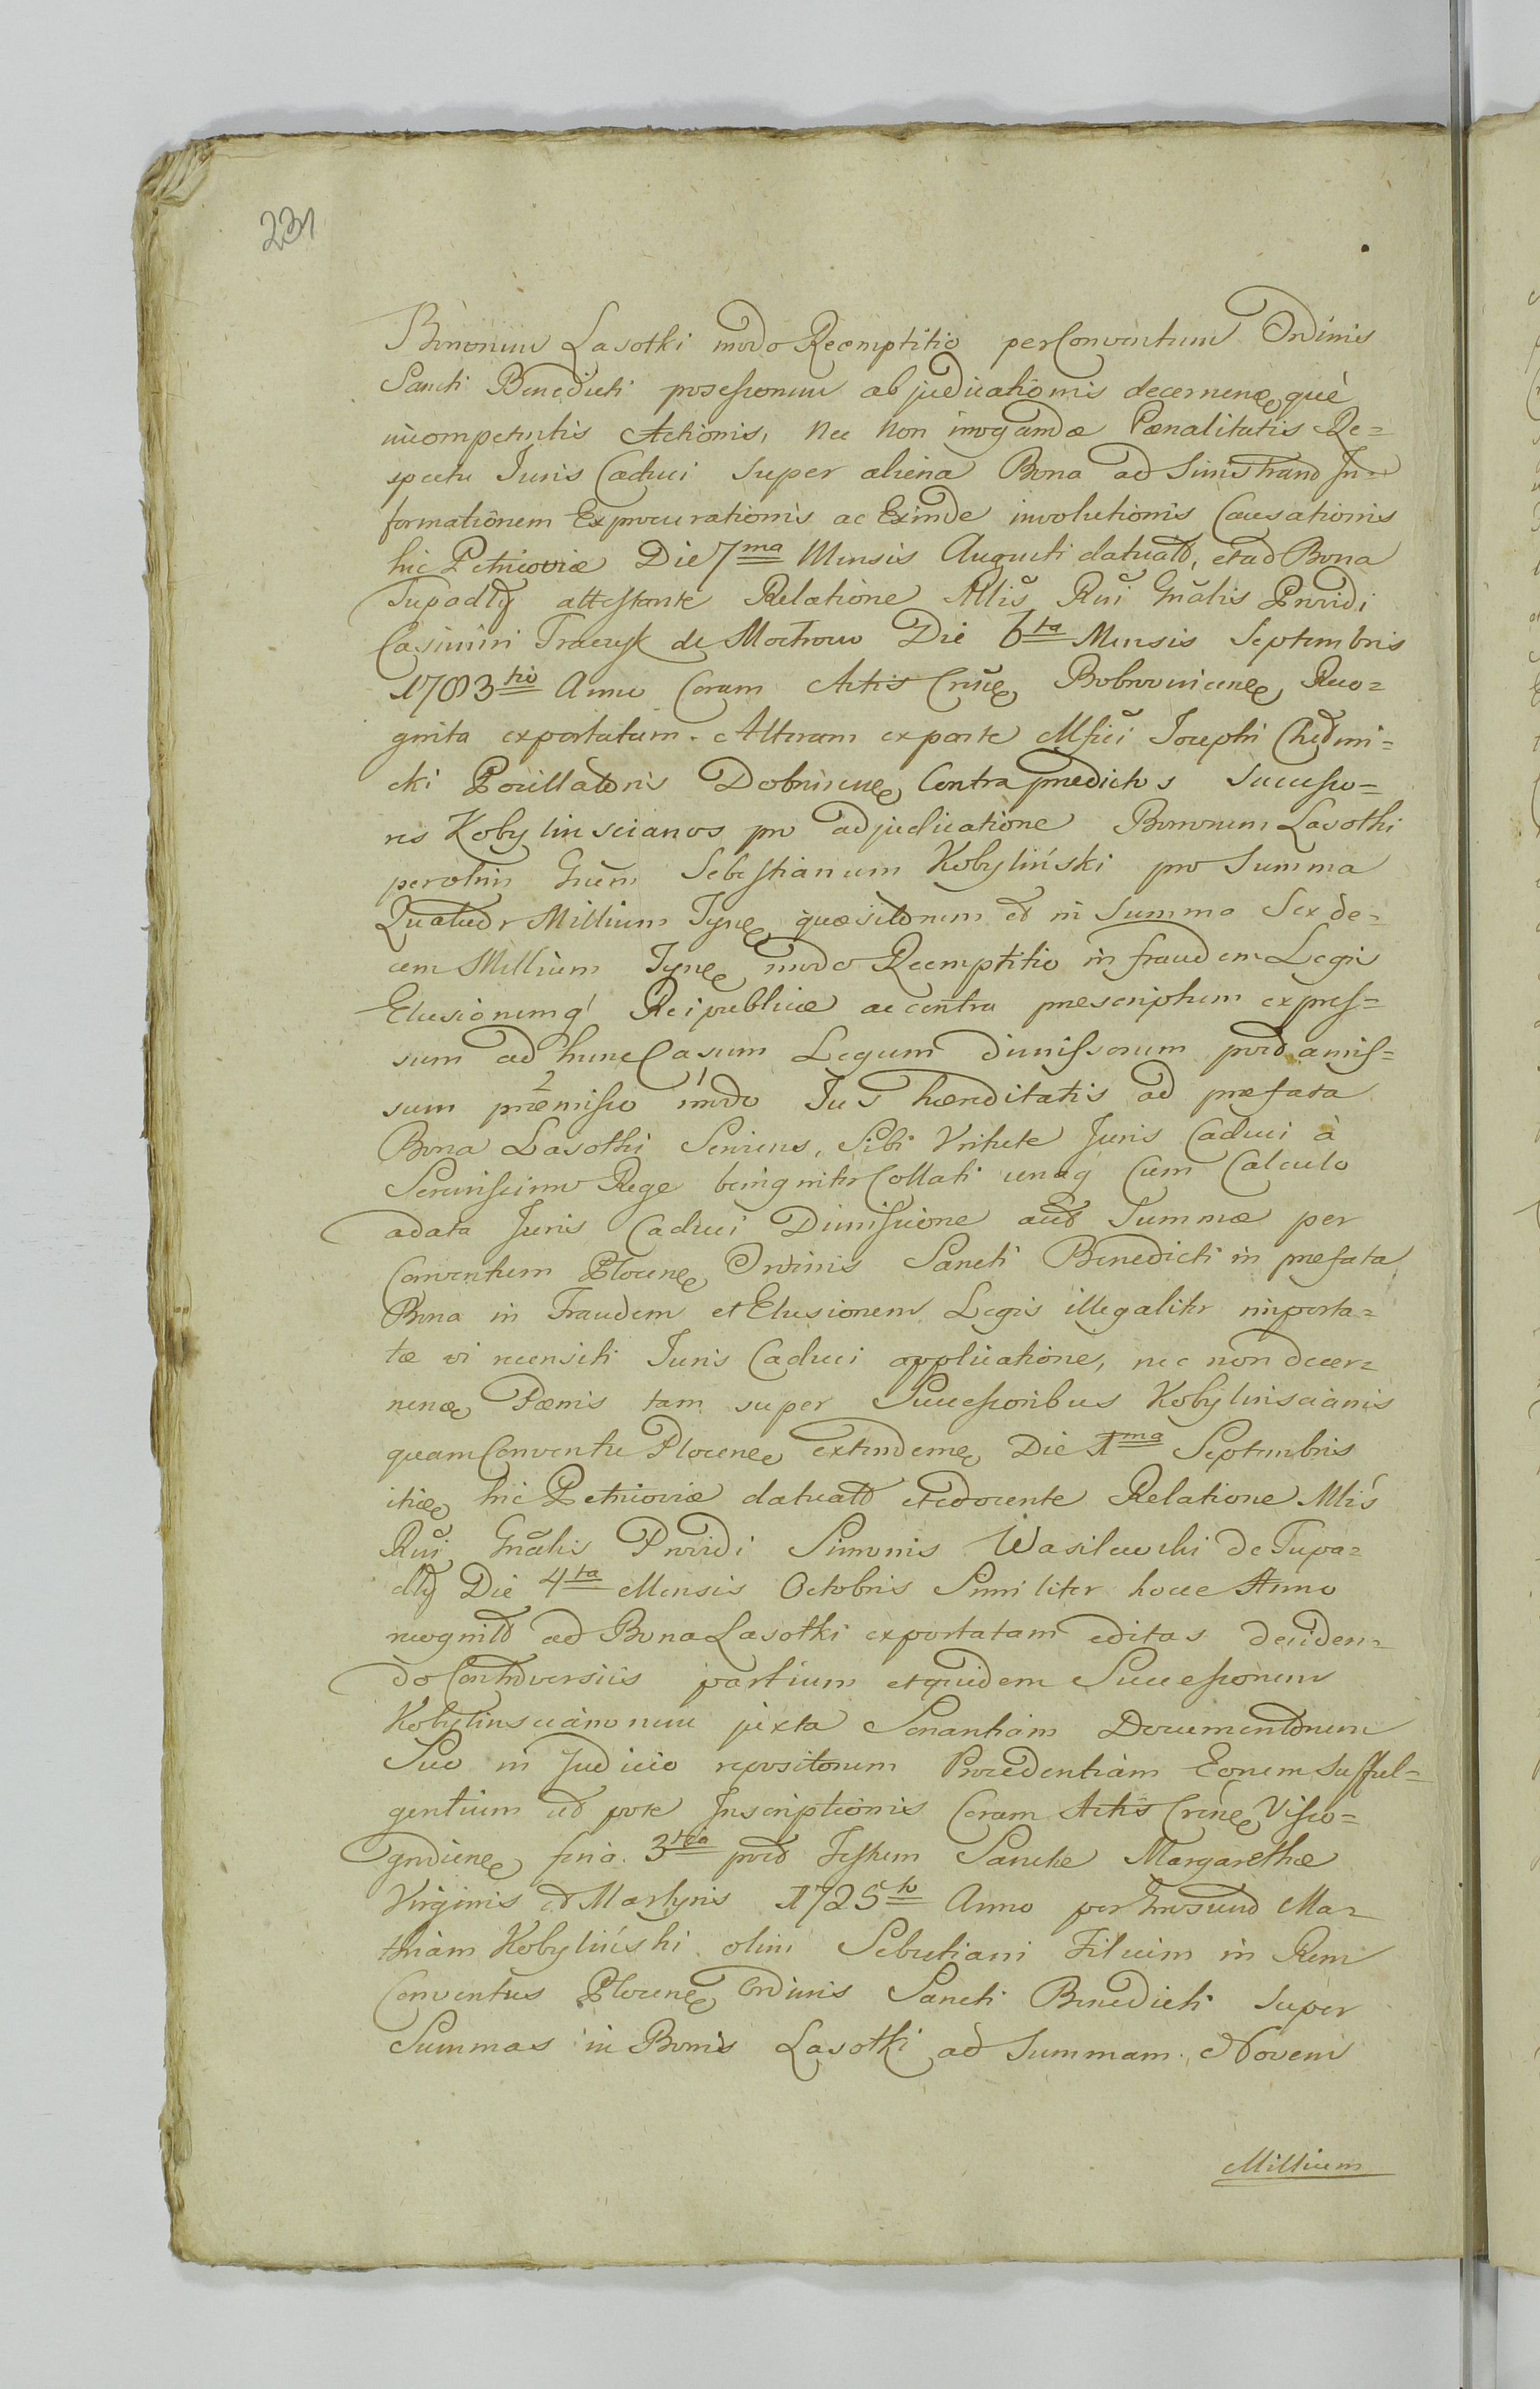 231
Bonorum Lasotki modo Reemptitio per Conventum Ordinis
Sancti Benedicti possessorum abjudicationis decernenæ, què
incompetentis Actionis, Nec Non irrogandæ Pænalitatis Re=
spectu Juris Caduci super aliena Bona ad Sinistram In=
formationem Exprocurationis ac Exinde involutionis Causationis
hic Petricoviæ Die 7ma Mensis Augusti datuatt, et ad Bona
Tupadły attestante Relatione Mlis Rni Gnalis Providi
Casimiri Traczyk de Mochowo Die 6ta Mensis Septembris
1783tio Anno Coram Actis Crucen, Bobrovnicen, Reco=
gnita exportatum. Alteram ex parte Mfici Josephi Chełmi=
cki Pocillatoris Dobrinen, Contra prædictos Successo=
res Kobylinscianos pro adjudicatione Bonorum Lasotki
per olim Gnum Sebestianum Kobyliński pro Summa
Quatuor Millium Tyn, quæsitorum et in Summa Sexde=
cem Millium Tyn, modo Reemptitio in fraudem Legis
Elusionemq Reipublicæ ac contra præscriptum expres=
sum ad hunc Casum Legum dimissorum prd amis=
sum præmisso 2 modo 1 Jus hæreditatis ad præfata
Bona Lasotki Seniens, Sibi Virtute Juris Caduci à
Serenissimo Rege benigniter Collati unaq Cum Calculo
a data Juris Caduci Dimissione aut Summæ per
Conventum Plocen, Ordinis Sancti Benedicti in præfata
Bona in Fraudem et Elusionem Legis illegaliter importa=
tæ vi recensiti Juris Caduci applicatione, nec non decer=
nenæ, Pænis tam super Successoribus Kobylinscianis
quam Conventu Plocen, extendenæ, Die 1ma Septembris
itiæ, hic Petricoviæ datuatt et edocente Relatione Mlis
Rni Gnalis Providi Simonis Wasilewski de Tupa=
dły Die 4ta Mensis Octobris Similiter hocce Anno
recognitt ad Bona Lasotki exportatam editas deciden=
do Controversiis partium et quidem Successorum
Kobylinscianorum juxta Sonantiam Documentorum
Suo in Judicio repositorum Procedentiam Eorum Sufful=
gentium ut pote Inscriptionis Coram Actis Cren, Visso=
grodien, feria 3tia prd Festum Sanctæ Margarethæ
Virginis et Martyris 1725to Anno per Grosum Ma=
thiam Kobyliński olim Sebestiani Filium in Rem
Conventus Plocen, Ordinis Sancti Benedicti super
Summas in Bonis Lasotki ad Summam Novem
Millium